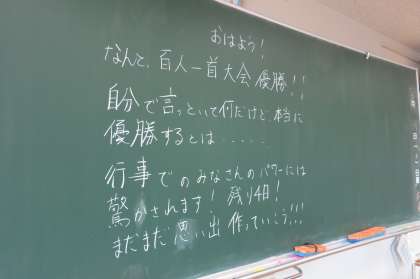 おはよう!
なんと、百人一首大会優勝!!
自分で言っといて何だけど、本当に
優勝するとは・・・・・
行事でのみなさんのパワーには
驚かされます! 残り4日!
まだまだ思い出作っていこう!!!